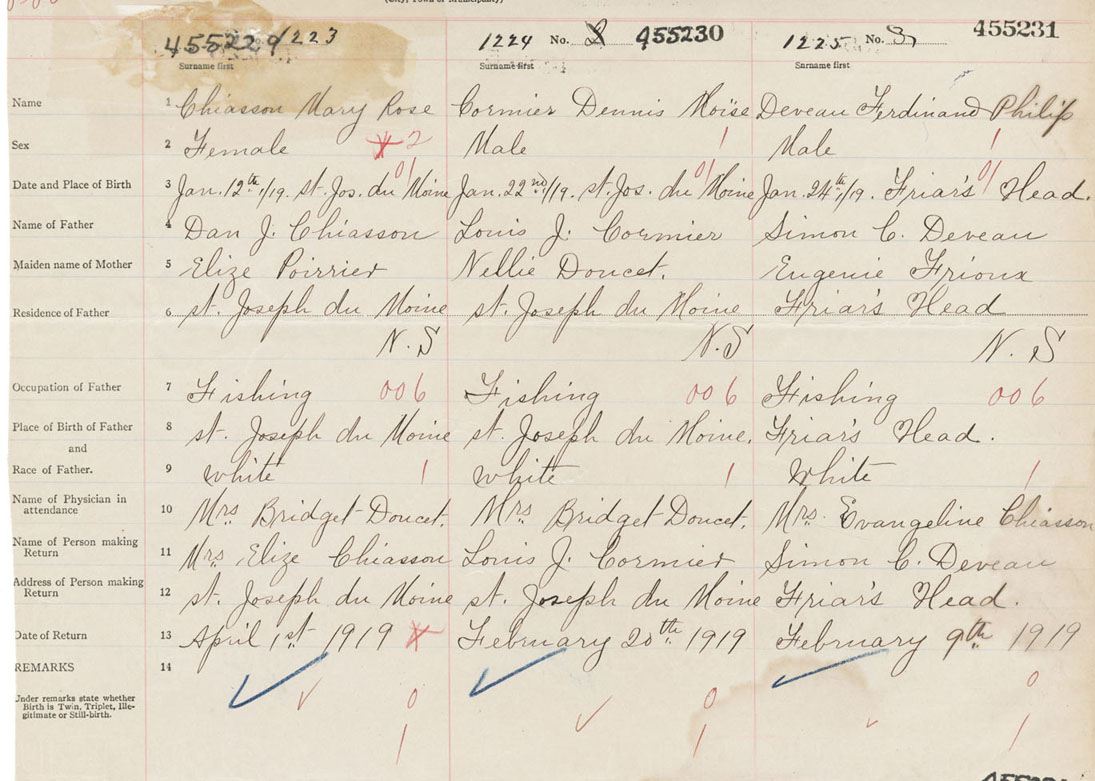 (City, Town or Municipality)
455229/1223 1224 No. 2 455230 1225 No. 3 455231
Surname first Surname first Surname first
Name 1 Chiasson Mary Rose Cormier Dennis Moïse Deveau Ferdinand Philip
Sex 2 Female 2 Male 1 Male 1
01 01 01
Date and Place of Birth 3 Jan. 12th/19. St. Jos. du Moine Jan. 22nd/19. St. Jos. du Moine Jan. 24th/19. Friar's Head.
Name of Father 4 Dan J. Chiasson Louis J. Cormier Simon C. Deveau
Maiden name of Mother 5 Elize Poirrier Nellie Doucet. Eugenie Frioux
Residence of Father 6 St. Joseph du Moine St. Joseph du Moine Friar's Head
N.S N.S N.S
Occupation of Father 7 Fishing 006 Fishing 006 Fishing 006
Place of Birth of Father 8 St. Joseph du Moine St. Joseph du Moine. Friar's Head.
and
Race of Father. 9 White 1 White 1 White 1
Name of Physician in
attendance 10 Mrs. Bridget Doucet. Mrs. Bridget Doucet. Mrs. Evangeline Chiasson
Name of Person making
Return 11 Mrs. Elize Chiasson Louis J. Cormier Simon C. Deveau
Address of Person making
Return 12 St. Joseph du Moine St. Joseph du Moine Friar's Head.
Date of Return 13 April 1st 1919 February 20th 1919 February 9th 1919
REMARKS 14
Under remarks state whether
Birth is Twin, Triplet, Ille-
gitimate or Still-birth.
0 0 0
1 1 1